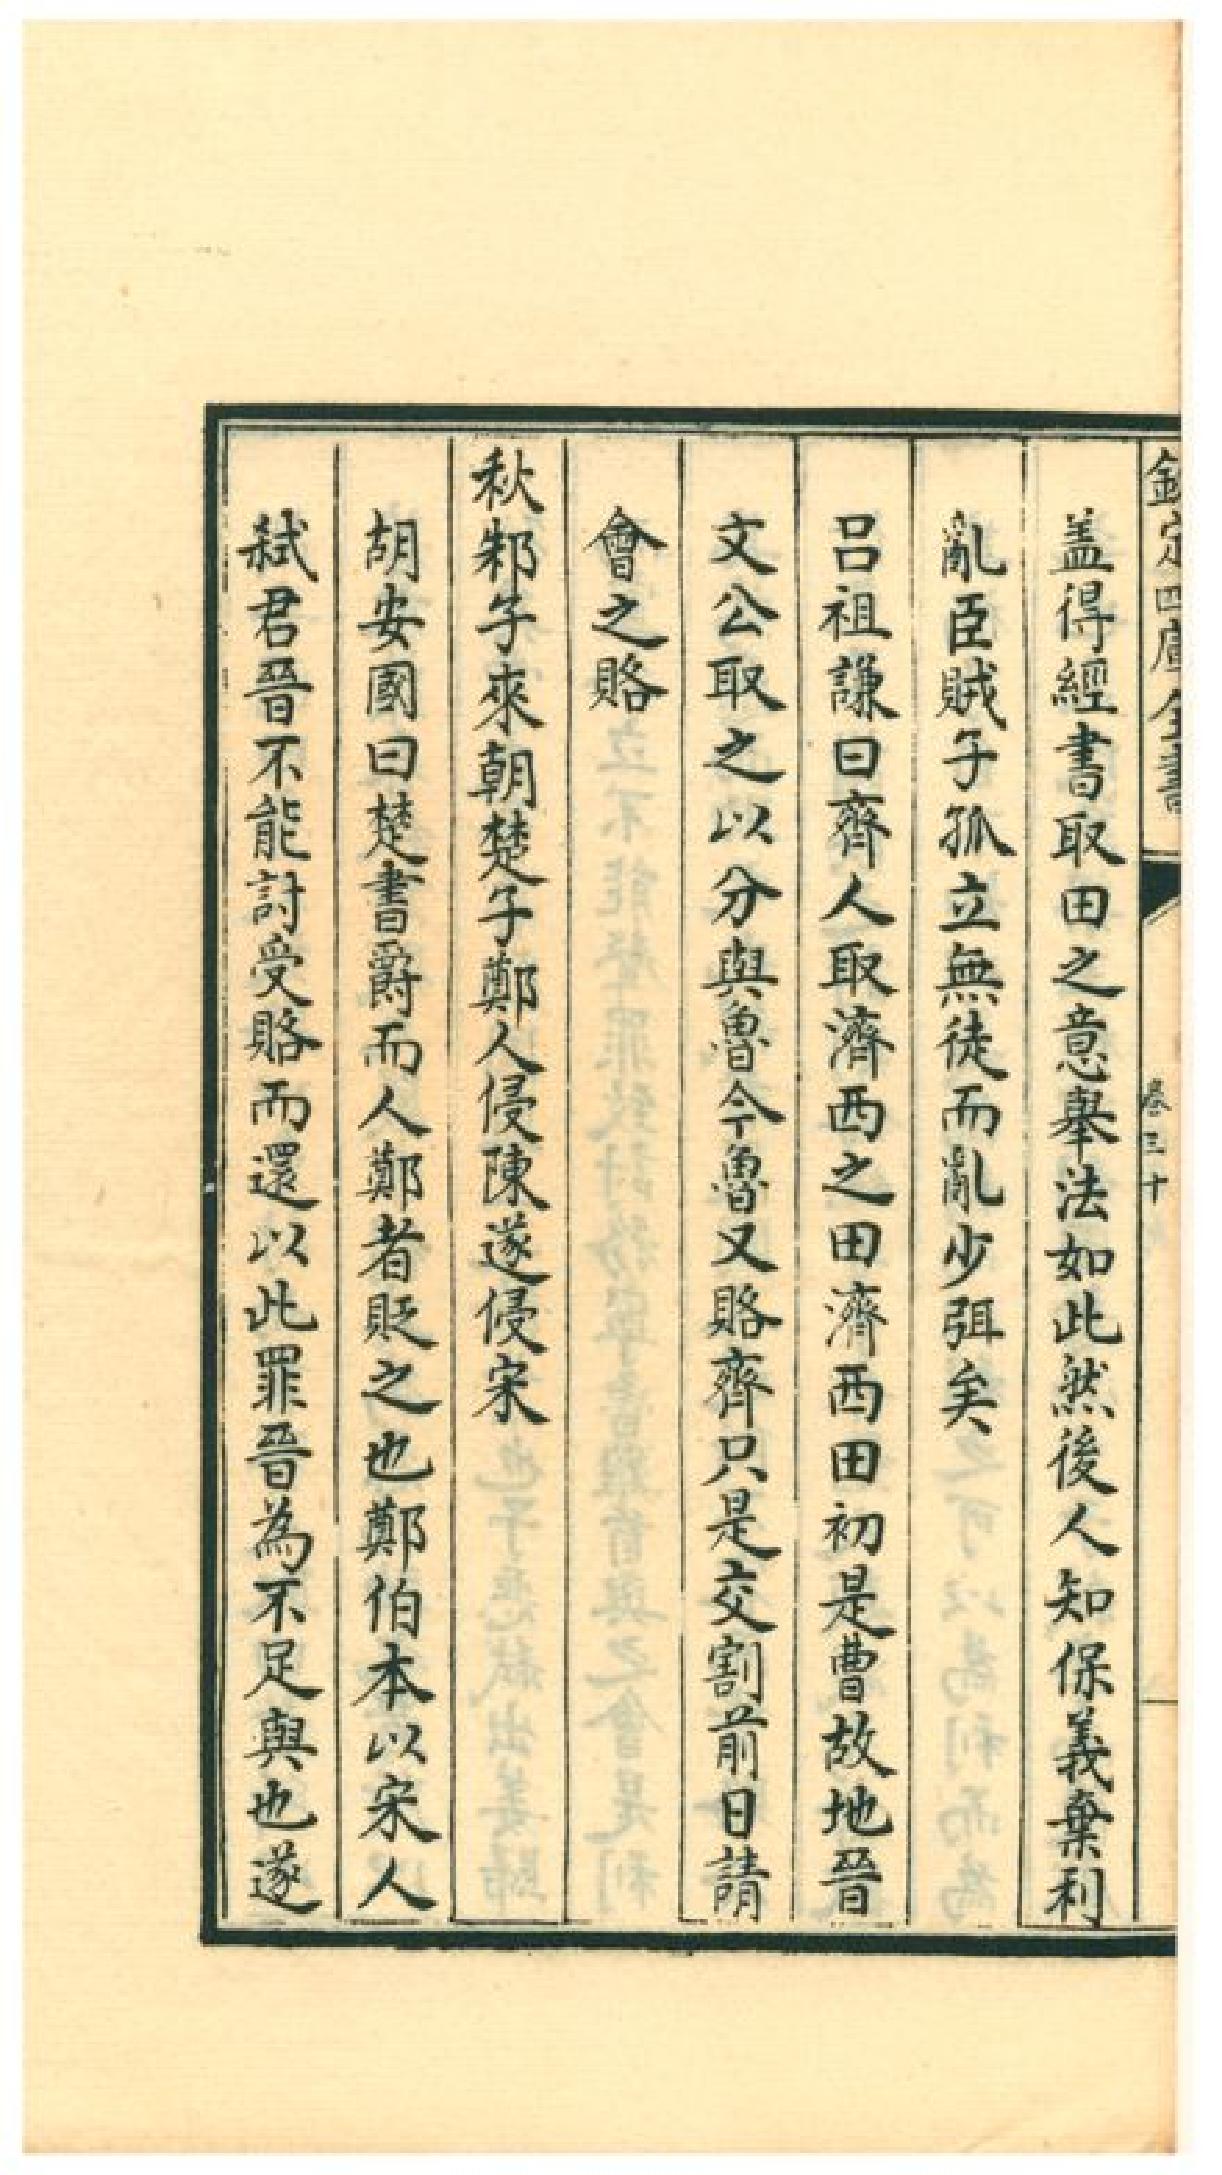 欽定四庫全書
卷三十
盖得經書取田之意舉法如此然後人知保義棄利
亂臣賊子孤立無徒而亂少弭矣
呂祖謙曰齊人取濟西之田濟西田初是曹故地晉
文公取之以分與魯今魯又賂齊只是交割前日請
會之賂
秋邾子來朝楚子鄭人侵陳遂侵宋
胡安國曰楚書爵而人鄭者貶之也鄭伯本以宋人
弑君晉不能討受賂而還以此罪晉為不足與也遂